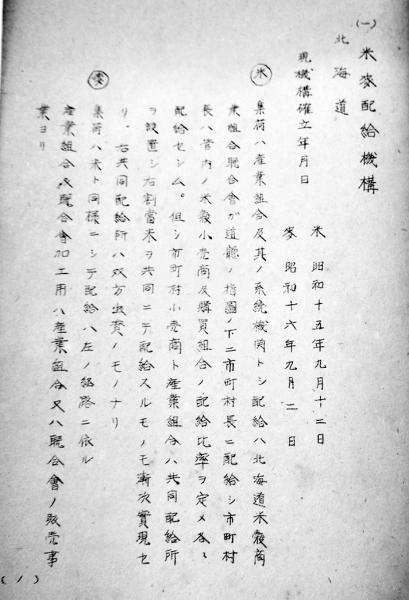 (一)
米麥配給機構
北海道
現機構確立年月日
米 昭和十五年九月十二日
麥 昭和十六年九月二日
米 集荷ハ産業組合及其ノ系統機関トシ配給ハ北海道米穀商
業組合聯合會ガ道廳ノ指圖ノ下ニ市町村長ニ配給シ市町村
長ハ管内ノ米穀小売商及購買組合ノ配給比率ヲ定メ各〻
配給セシム。但シ市町村小売商ト産業組合ハ共同配給所
ヲ設置シ右割當米ヲ共同ニテ配給スルモノモ漸次實現セ
リ、右共同配給所ハ双方出資ノモノナリ
麥 集荷ハ米ト同様ニシテ配給ハ左ノ経路ニ依ル
産業組合及聯合會加工用ハ産業組合又ハ聯合會ノ販売事
業ヨリ
(1)